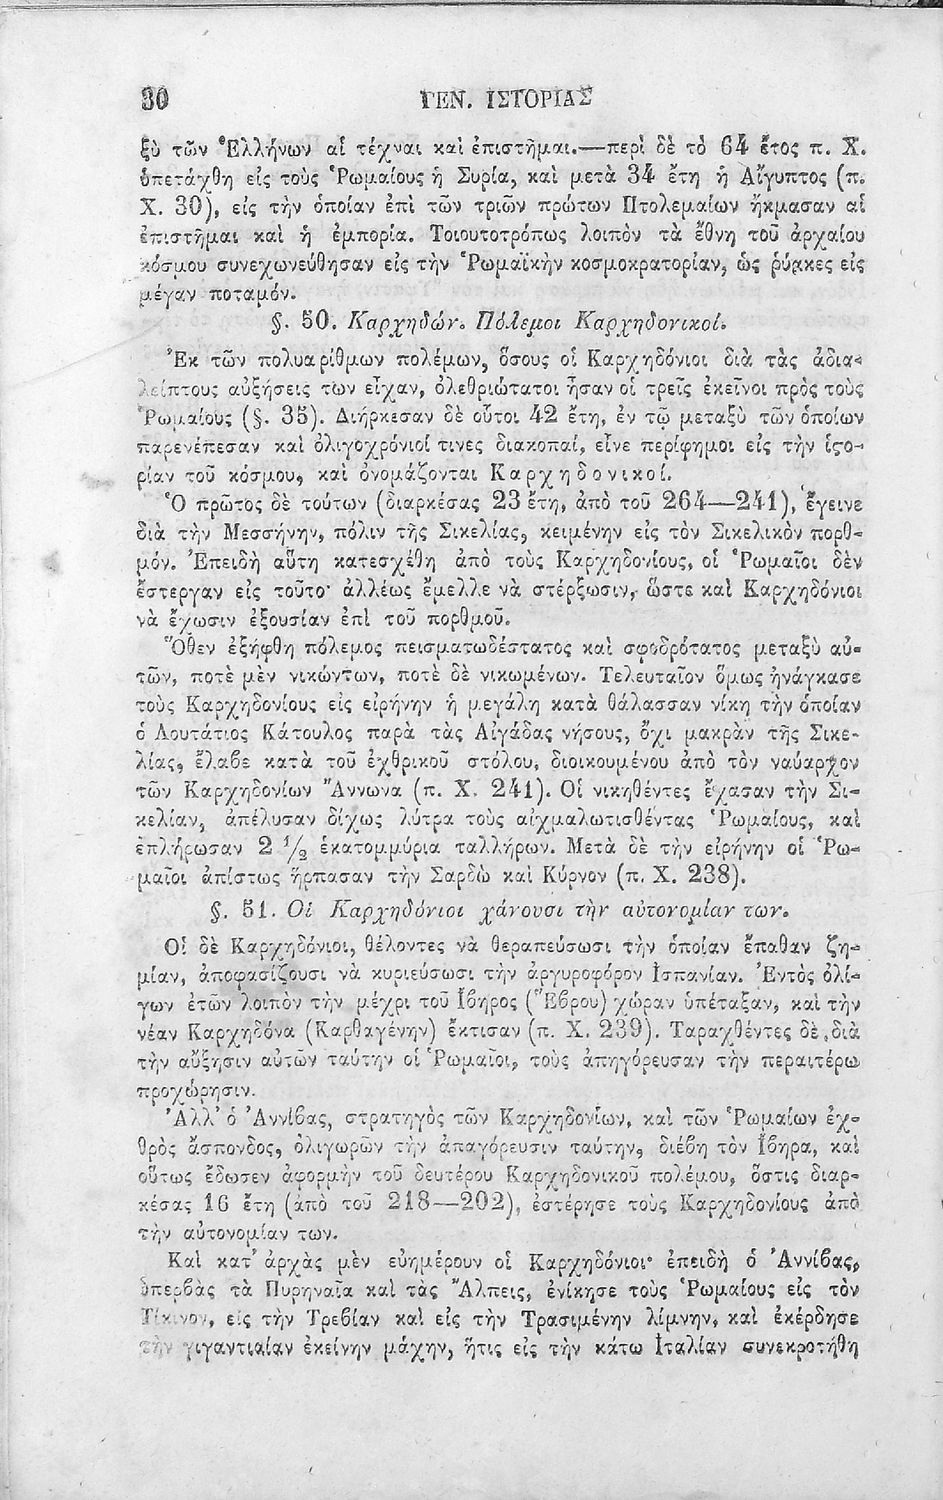 30 ΓΕΝ. ΙΣΤΟΡΙΑΣ
ξὺ τῶν Ἑλλήνων αἱ τέχναι καὶ ἐπιστῆμαι.—περὶ δὲ τὸ 64 ἔτος π. Χ.
ὑπετάχθη εἰς τοὺς Ῥωμαίους ἡ Συρία, καὶ μετὰ 34 ἔτη ἡ Αἴγυπτος (π.
Χ. 30), εἰς τὴν ὁποίαν ἐπὶ τῶν τριῶν πρώτων Πτολεμαίων ἤκμασαν αἱ
ἐπιστῆμαι καὶ ἡ ἐμπορία. Τοιουτοτρόπως λοιπὸν τὰ ἔθνη τοῦ ἀρχαίου
κόσμου συνεχωνεύθησαν εἰς τὴν Ῥωμαϊκὴν κοσμοκρατορίαν, ὡς ῥύακες εἰς
μέγαν ποταμόν.
§. 50. Καρχηδών. Πόλεμοι Καρχηδονικοί.
Ἐκ τῶν πολυαρίθμων πολέμων, ὅσους οἱ Καρχηδόνιοι διὰ τὰς ἀδια-
λείπτους αὐξήσεις των εἶχαν, ὀλεθριώτατοι ἦσαν οἱ τρεῖς ἐκεῖνοι πρὸς τοὺς
Ῥωμαίους (§. 35). Διήρκεσαν δὲ οὗτοι 42 ἔτη, ἐν τῷ μεταξὺ τῶν ὁποίων
παρενέπεσαν καὶ ὀλιγοχρόνιοί τινες διακοπαί, εἶνε περίφημοι εἰς τὴν ἱϛο-
ρίαν τοῦ κόσμου, καὶ ὀνομάζονται Καρχηδονικοί.
Ὁ πρῶτος δὲ τούτων (διαρκέσας 23 ἔτη, ἀπὸ τοῦ 264—241), ἔγεινε
διὰ τὴν Μεσσήνην, πόλιν τῆς Σικελίας, κειμένην εἰς τὸν Σικελικὸν πορθ-
μόν. Ἐπειδὴ αὕτη κατεσχέθη ἀπὸ τοὺς Καρχηδονίους, οἱ Ῥωμαῖοι δὲν
ἔστεργαν εἰς τοῦτο· ἀλλέως ἔμελλε νὰ στέρξωσιν, ὥστε καὶ Καρχηδόνιοι
νὰ ἔχωσιν ἐξουσίαν ἐπὶ τοῦ πορθμοῦ.
Ὅθεν ἐξήφθη πόλεμος πεισματωδέστατος καὶ σφοδρότατος μεταξὺ αὐ-
τῶν, ποτὲ μὲν νικώντων, ποτὲ δὲ νικωμένων. Τελευταῖον ὅμως ἠνάγκασε
τοὺς Καρχηδονίους εἰς εἰρήνην ἡ μεγάλη κατὰ θάλασσαν νίκη τὴν ὁποίαν
ὁ Λουτάτιος Κάτουλος παρὰ τὰς Αἰγάδας νήσους, ὄχι μακρὰν τῆς Σικε-
λίας, ἔλαβε κατὰ τοῦ ἐχθρικοῦ στόλου, διοικουμένου ἀπὸ τὸν ναύαρχον
τῶν Καρχηδονίων Ἄννωνα (π. Χ. 241). Οἱ νικηθέντες ἔχασαν τὴν Σι-
κελίαν, ἀπέλυσαν δίχως λύτρα τοὺς αἰχμαλωτισθέντας Ῥωμαίους, καὶ
ἐπλήρωσαν 2 ½ ἑκατομμύρια ταλλήρων. Μετὰ δὲ τὴν εἰρήνην οἱ Ῥω-
μαῖοι ἀπίστως ἥρπασαν τὴν Σαρδὼ καὶ Κύρνον (π. Χ. 238).
§. 51. Οἱ Καρχηδόνιοι χάνουσι τὴν αὐτονομίαν των.
Οἱ δὲ Καρχηδόνιοι, θέλοντες νὰ θεραπεύσωσι τὴν ὁποίαν ἔπαθαν ζη-
μίαν, ἀποφασίζουσι νὰ κυριεύσωσι τὴν ἀργυροφόρον Ἱσπανίαν. Ἐντὸς ὀλί-
γων ἐτῶν λοιπὸν τὴν μέχρι τοῦ Ἴβηρος (Ἕβρου) χώραν ὑπέταξαν, καὶ τὴν
νέαν Καρχηδόνα (Καρθαγένην) ἔκτισαν (π. Χ. 239). Ταραχθέντες δὲ διὰ
τὴν αὔξησιν αὐτῶν ταύτην οἱ Ῥωμαῖοι, τοὺς ἀπηγόρευσαν τὴν περαιτέρω
προχώρησιν.
Ἀλλ' ὁ Ἀννίβας, στρατηγὸς τῶν Καρχηδονίων, καὶ τῶν Ῥωμαίων ἐχ-
θρὸς ἄσπονδος, ὀλιγωρῶν τὴν ἀπαγόρευσιν ταύτην, διέβη τὸν Ἴβηρα, καὶ
οὕτως ἔδωσεν ἀφορμὴν τοῦ δευτέρου Καρχηδονικοῦ πολέμου, ὅστις διαρ-
κέσας 16 ἔτη (ἀπὸ τοῦ 218—202), ἐστέρησε τοὺς Καρχηδονίους ἀπὸ
τὴν αὐτονομίαν των.
Καὶ κατ' ἀρχὰς μὲν εὐημέρουν οἱ Καρχηδόνιοι· ἐπειδὴ ὁ Ἀννίβας,
ὑπερβὰς τὰ Πυρηναῖα καὶ τὰς Ἄλπεις, ἐνίκησε τοὺς Ῥωμαίους εἰς τὸν
Τίκινον, εἰς τὴν Τρεβίαν καὶ εἰς τὴν Τρασιμένην λίμνην, καὶ ἐκέρδησε
τὴν γιγαντιαίαν ἐκείνην μάχην, ἥτις εἰς τὴν κάτω Ἰταλίαν συνεκροτήθη